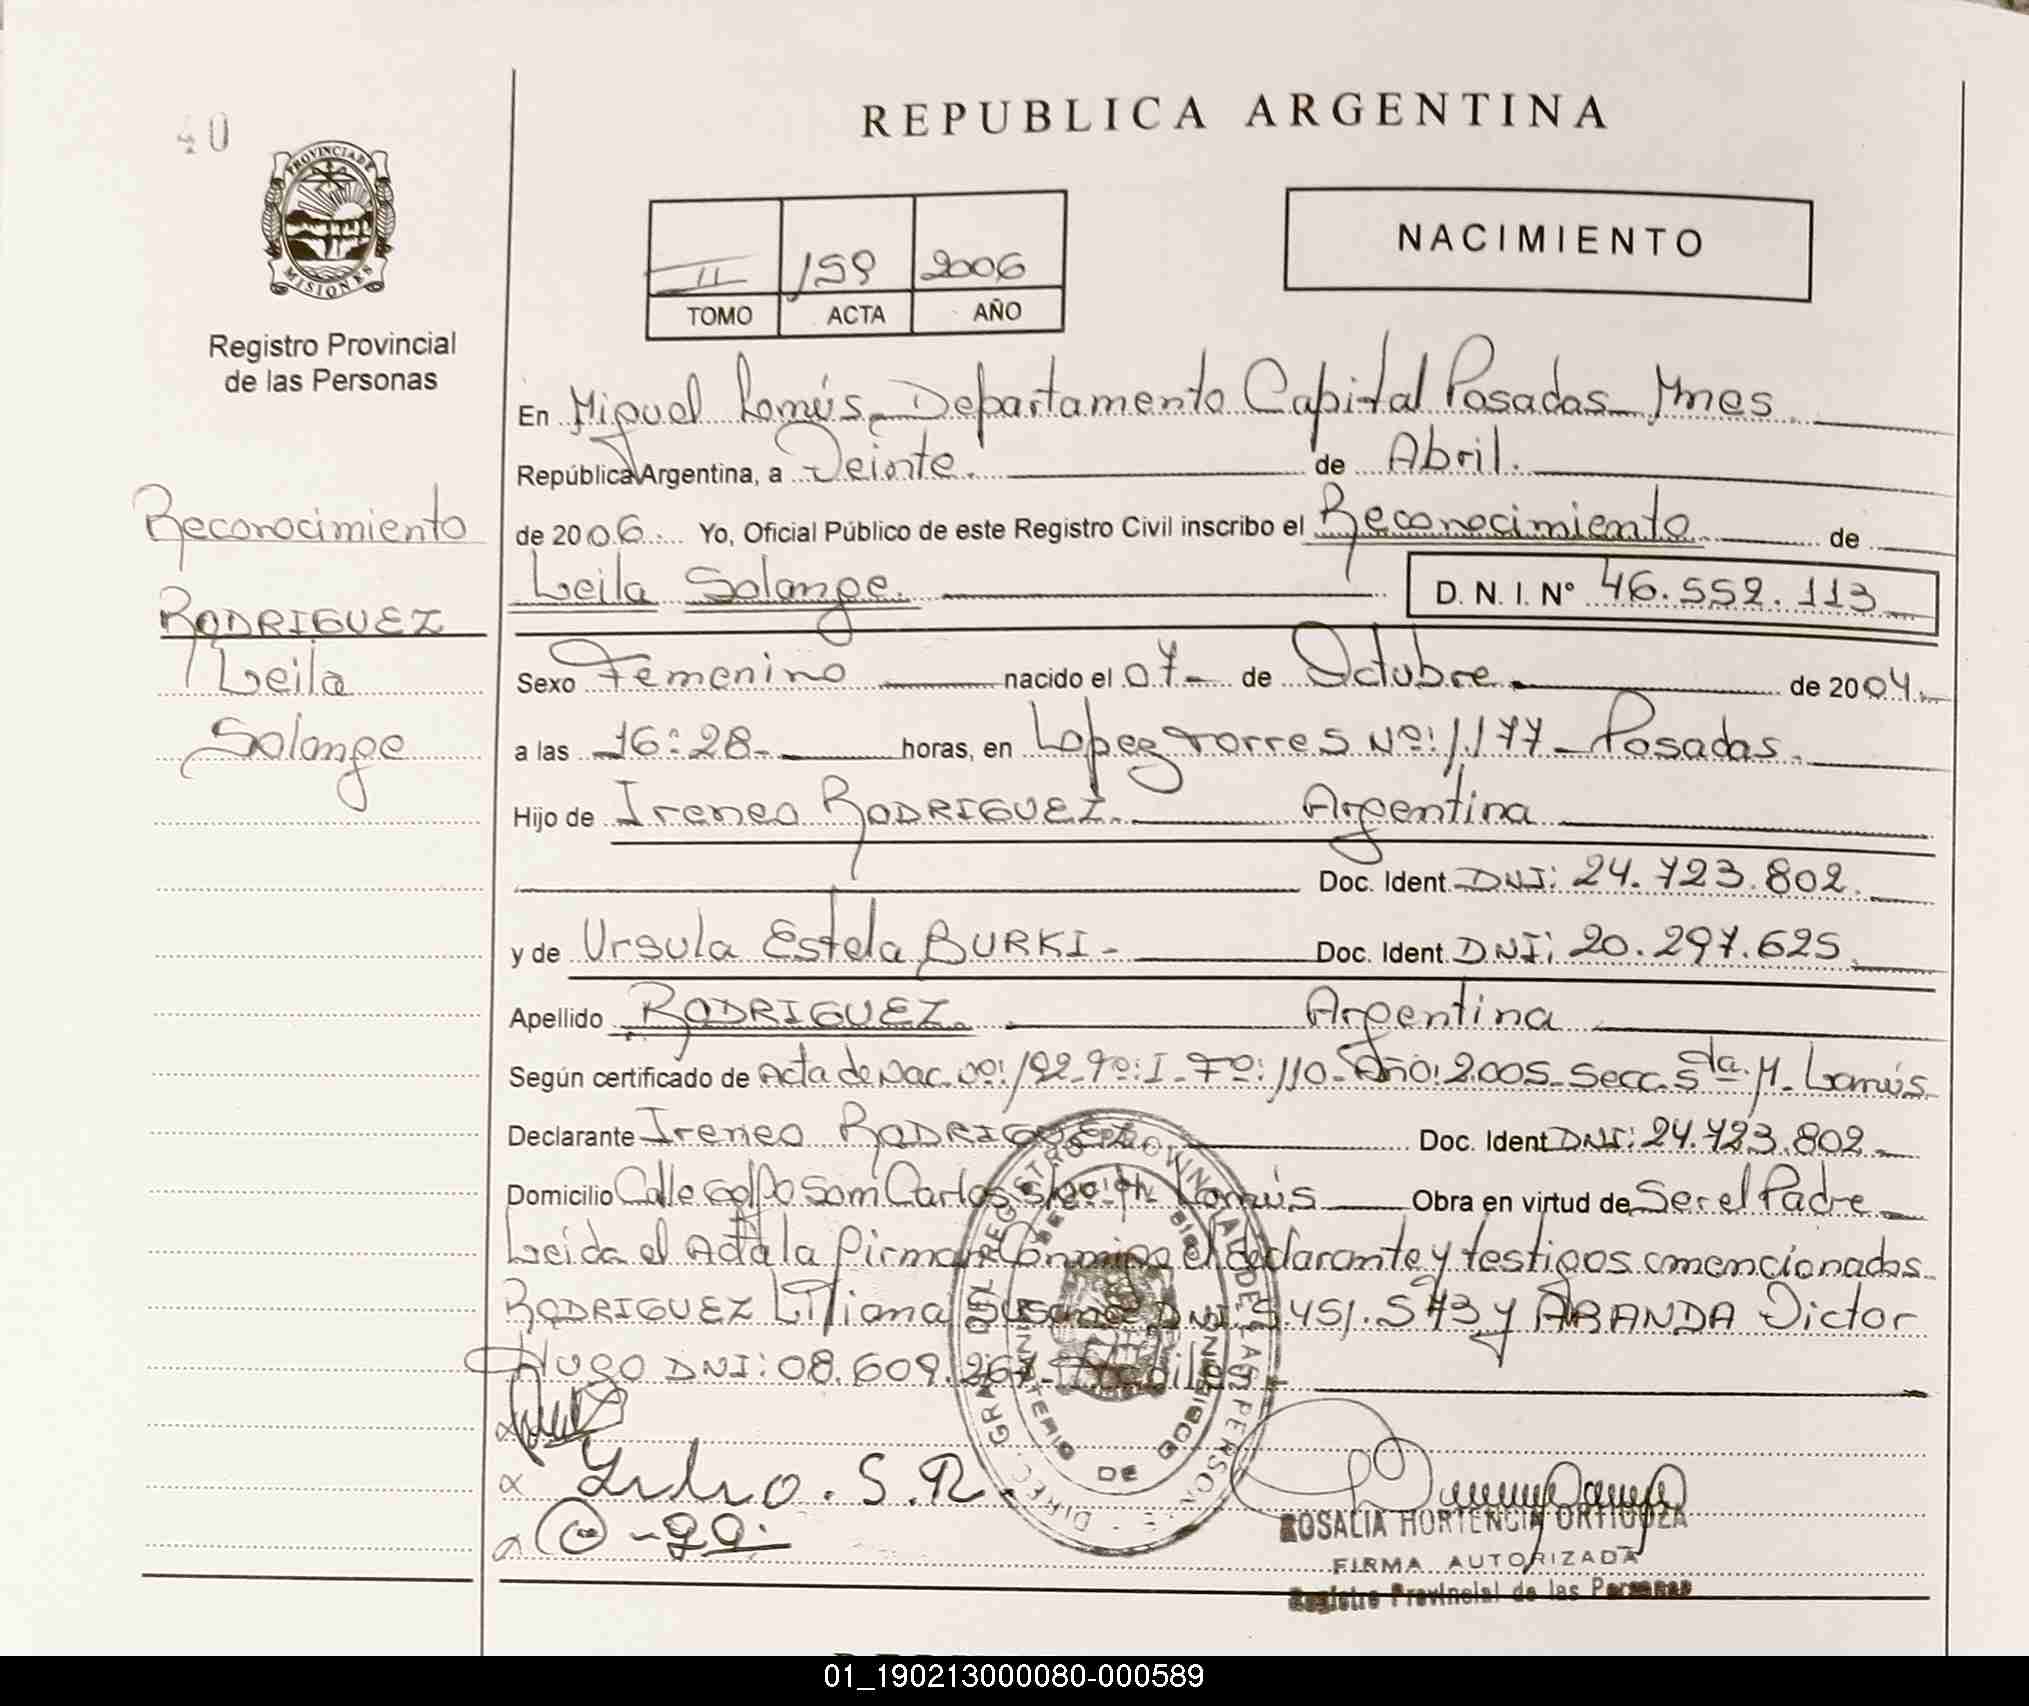 REPUBLICA ARGENTINA
40
PROVINCIA DE MISIONES
Registro Provincial
de las Personas
II 159 2006
TOMO ACTA AÑO
NACIMIENTO
Reconocimiento
RODRIGUEZ
Leila
Solange
En Miguel Lanús - Departamento Capital Posadas Mnes
República Argentina, a Veinte. de Abril.
de 2006. Yo, Oficial Público de este Registro Civil inscribo el Reconocimiento de
Leila Solange. D. N. I. Nº 46.552.113
Sexo Femenino nacido el 07 de Octubre de 2004.
a las 16:28 horas, en Lopez Torres Nº: 1.177 - Posadas.
Hijo de Ireneo RODRIGUEZ. Argentina
Doc. Ident. DNI: 24.723.802.
y de Ursula Estela BURKI - Doc. Ident. DNI: 20.297.625
Apellido RODRIGUEZ. Argentina
Según certificado de Acta de Nac. Nº: 192 - Tº: I - Fº: 110 - Año: 2005 - Secc. 5ta. M. Lanús
Declarante Ireneo RODRIGUEZ. Doc. Ident DNI: 24.723.802
Domicilio Calle Golfo San Carlos Lanús Obra en virtud de Ser el Padre
Leida el Acta la firman Conmigo el declarante y testigos mencionados
RODRIGUEZ Liliana Susana DNI 5.451.573 y ARANDA Victor
Hugo DNI: 08.609.267
DIREC. GRAL DEL REGISTRO PROVINCIAL DE LAS PERSONAS
MINISTERIO DE
ROSALIA HORTENCIA ORTIGOZA
FIRMA AUTORIZADA
Registro Provincial de las Personas
01_190213000080-000589